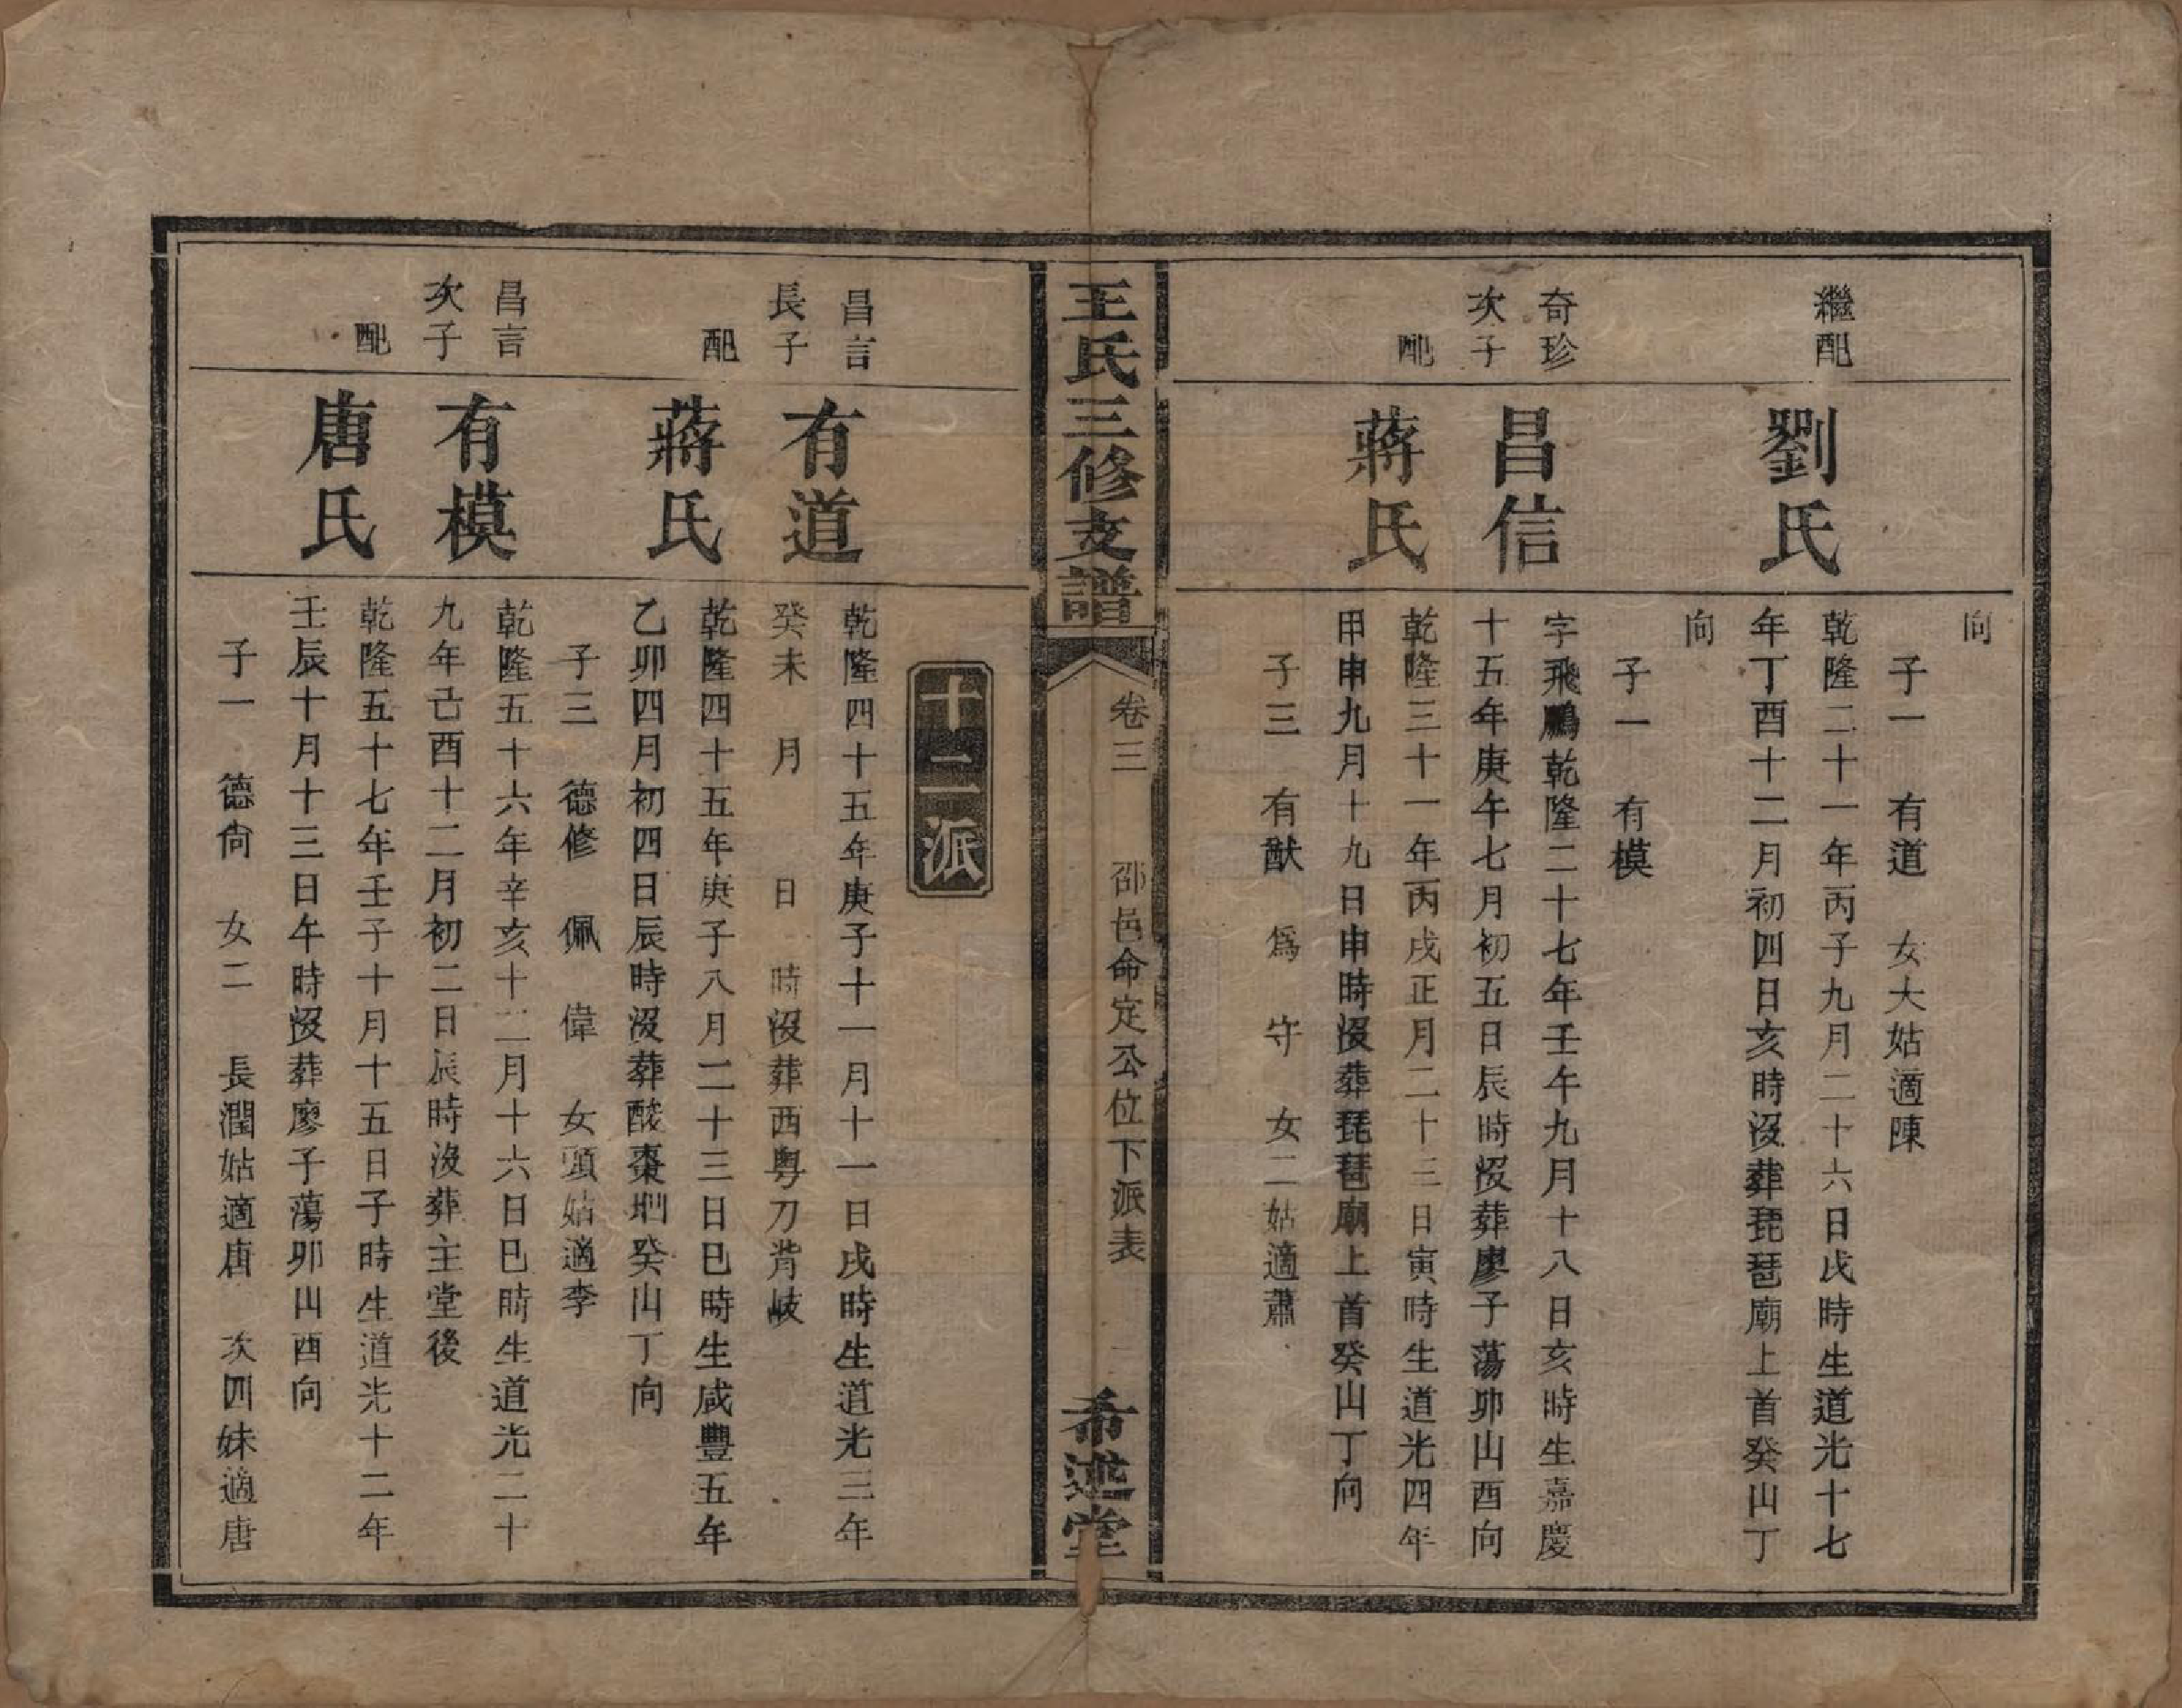 向
子一　有道　女大姑適陳
繼配
劉氏
乾隆二十一年丙子九月二十六日戌時生道光十七
年丁酉十二月初四日亥時沒葬琵琶廟上首癸山丁
向
子一　有模
奇珍
次子
昌信
字飛鵬乾隆二十七年壬午九月十八日亥時生嘉慶
十五年庚午七月初五日辰時歿葬廖子蕩卯山酉向
配
蔣氏
乾隆三十一年丙戌正月二十三日寅時生道光四年
甲申九月十九日申時沒葬琵琶廟上首癸山丁向
子三　有猷　爲　守　女二姑適蕭
王氏三修支譜
卷三　邵邑命定公位下派表　一
希述堂
十二派
昌言
長子
有道
乾隆四十五年庚子十一月十一日戌時生道光三年
癸未　月　日　時沒葬西粤刀背岐
配
蔣氏
乾隆四十五年庚子八月二十三日巳時生咸豐五年
乙卯四月初四日辰時沒葬酸棗𡊠癸山丁向
子三　德修　佩　偉　女頭姑適李
昌言
次子
有模
乾隆五十六年辛亥十二月十六日巳時生道光二十
九年己酉十二月初二日辰時沒葬主堂後
配
唐氏
乾隆五十七年壬子十月十五日子時生道光十二年
壬辰十月十三日午時歿葬廖子蕩卯山酉向
子一　德尙　女二　長潤姑適唐　次四妹適唐